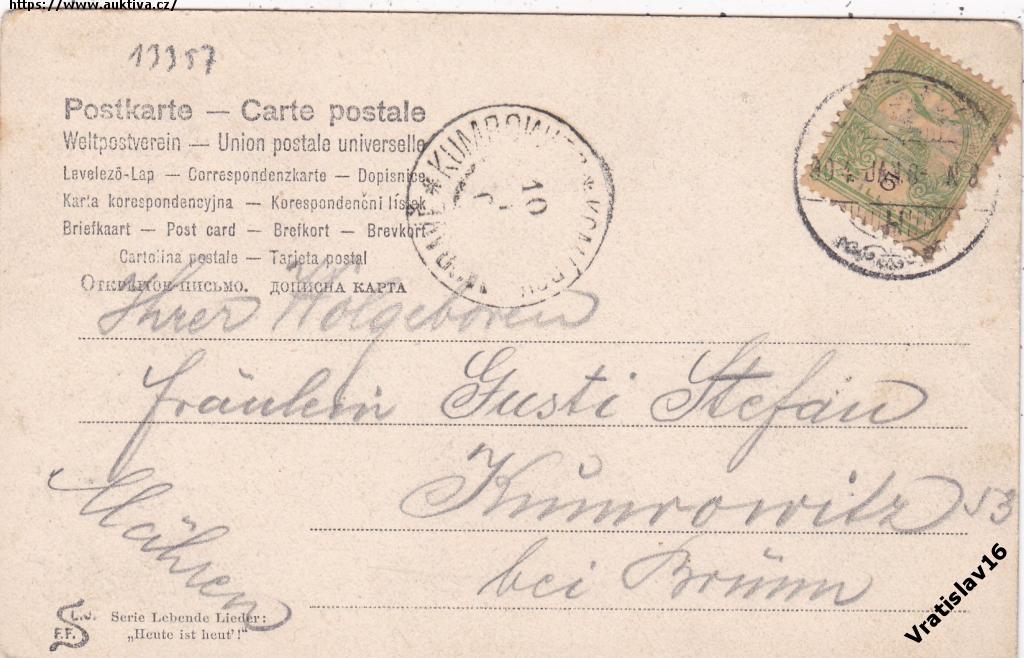 https://www.auktiva.cz/
13357
Postkarte — Carte postale
Weltpostverein — Union postale universelle
Levelező-Lap — Correspondenzkarte — Dopisnice
Karta korespondencyjna — Korespondenční lístek
Briefkaart — Post card — Brefkort — Brevkort
Cartolina postale — Tarjeta postal
Открытое письмо. ДОПИСНА КАРТА
KUMROWITZ
10
Ihrer Wolgeboren
Fräulein Gusti Stefan
Kumrowitz 53
bei Brünn
Mähren
L.J.
F.F.
Serie Lebende Lieder:
„Heute ist heut'!“
Vratislav16